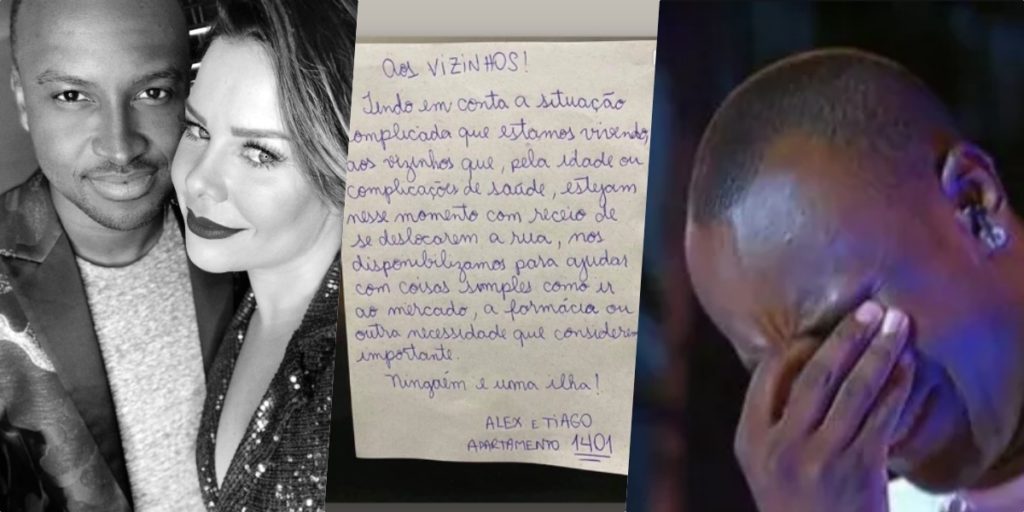 aos VIZINHOS!
Tendo em conta a situação
complicada que estamos vivendo,
aos vizinhos que, pela idade ou
complicações de saúde, estejam
nesse momento com receio de
se deslocarem a rua, nos
disponibilizamos para ajudar
com coisas simples como ir
ao mercado, a formácia ou
outra necessidade que considerem
importante.
Ninguém e uma ilha!
ALEX E TIAGO
APARTAMENTO 1401